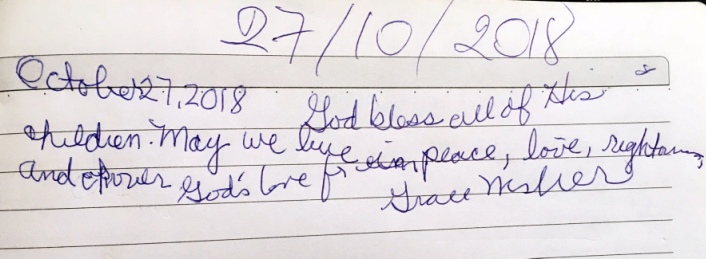 27/10/2018
October 27, 2018 God bless all of His
children. May we live in peace, love,
and God's love
Grace